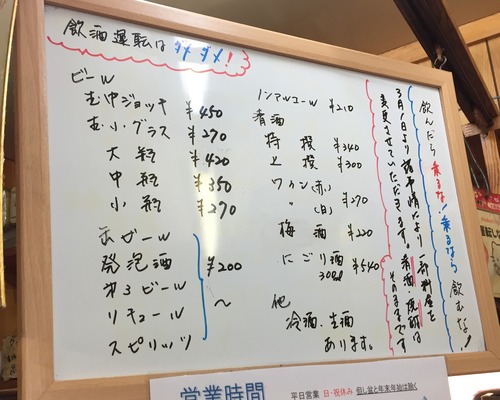 飲酒運転はダメダメ!
ビール
生中ジョッキ ¥450
生小グラス ¥270
大瓶 ¥420
中瓶 ¥350
小瓶 ¥270
缶ビール
発泡酒 ¥200
第3ビール 〜
リキュール
スピリッツ
ノンアルコール ¥210
清酒
特撰 ¥340
上撰 ¥300
ワイン(赤)
〃(白) ¥270
梅酒 ¥220
にごり酒 ¥540
300ml
他
冷酒、生酒
あります。
飲んだら乗るな!乗るなら飲むな!
3月1日より諸事情により一部料金を
変更させていただきます。清酒・焼酎は
そのままです
営業時間
平日営業 日・祝休み 但し盆と年末年始は除く